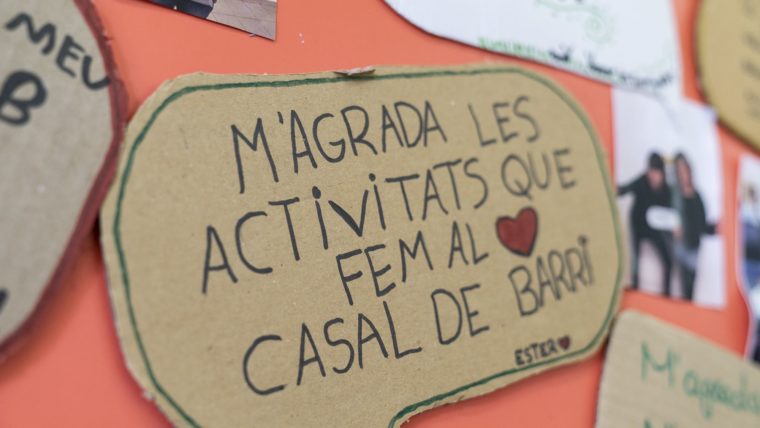 MEU
B
M'AGRADA LES
ACTIVITATS QUE
FEM AL ♥
CASAL DE BARRi
ESTER♥
M'agrada